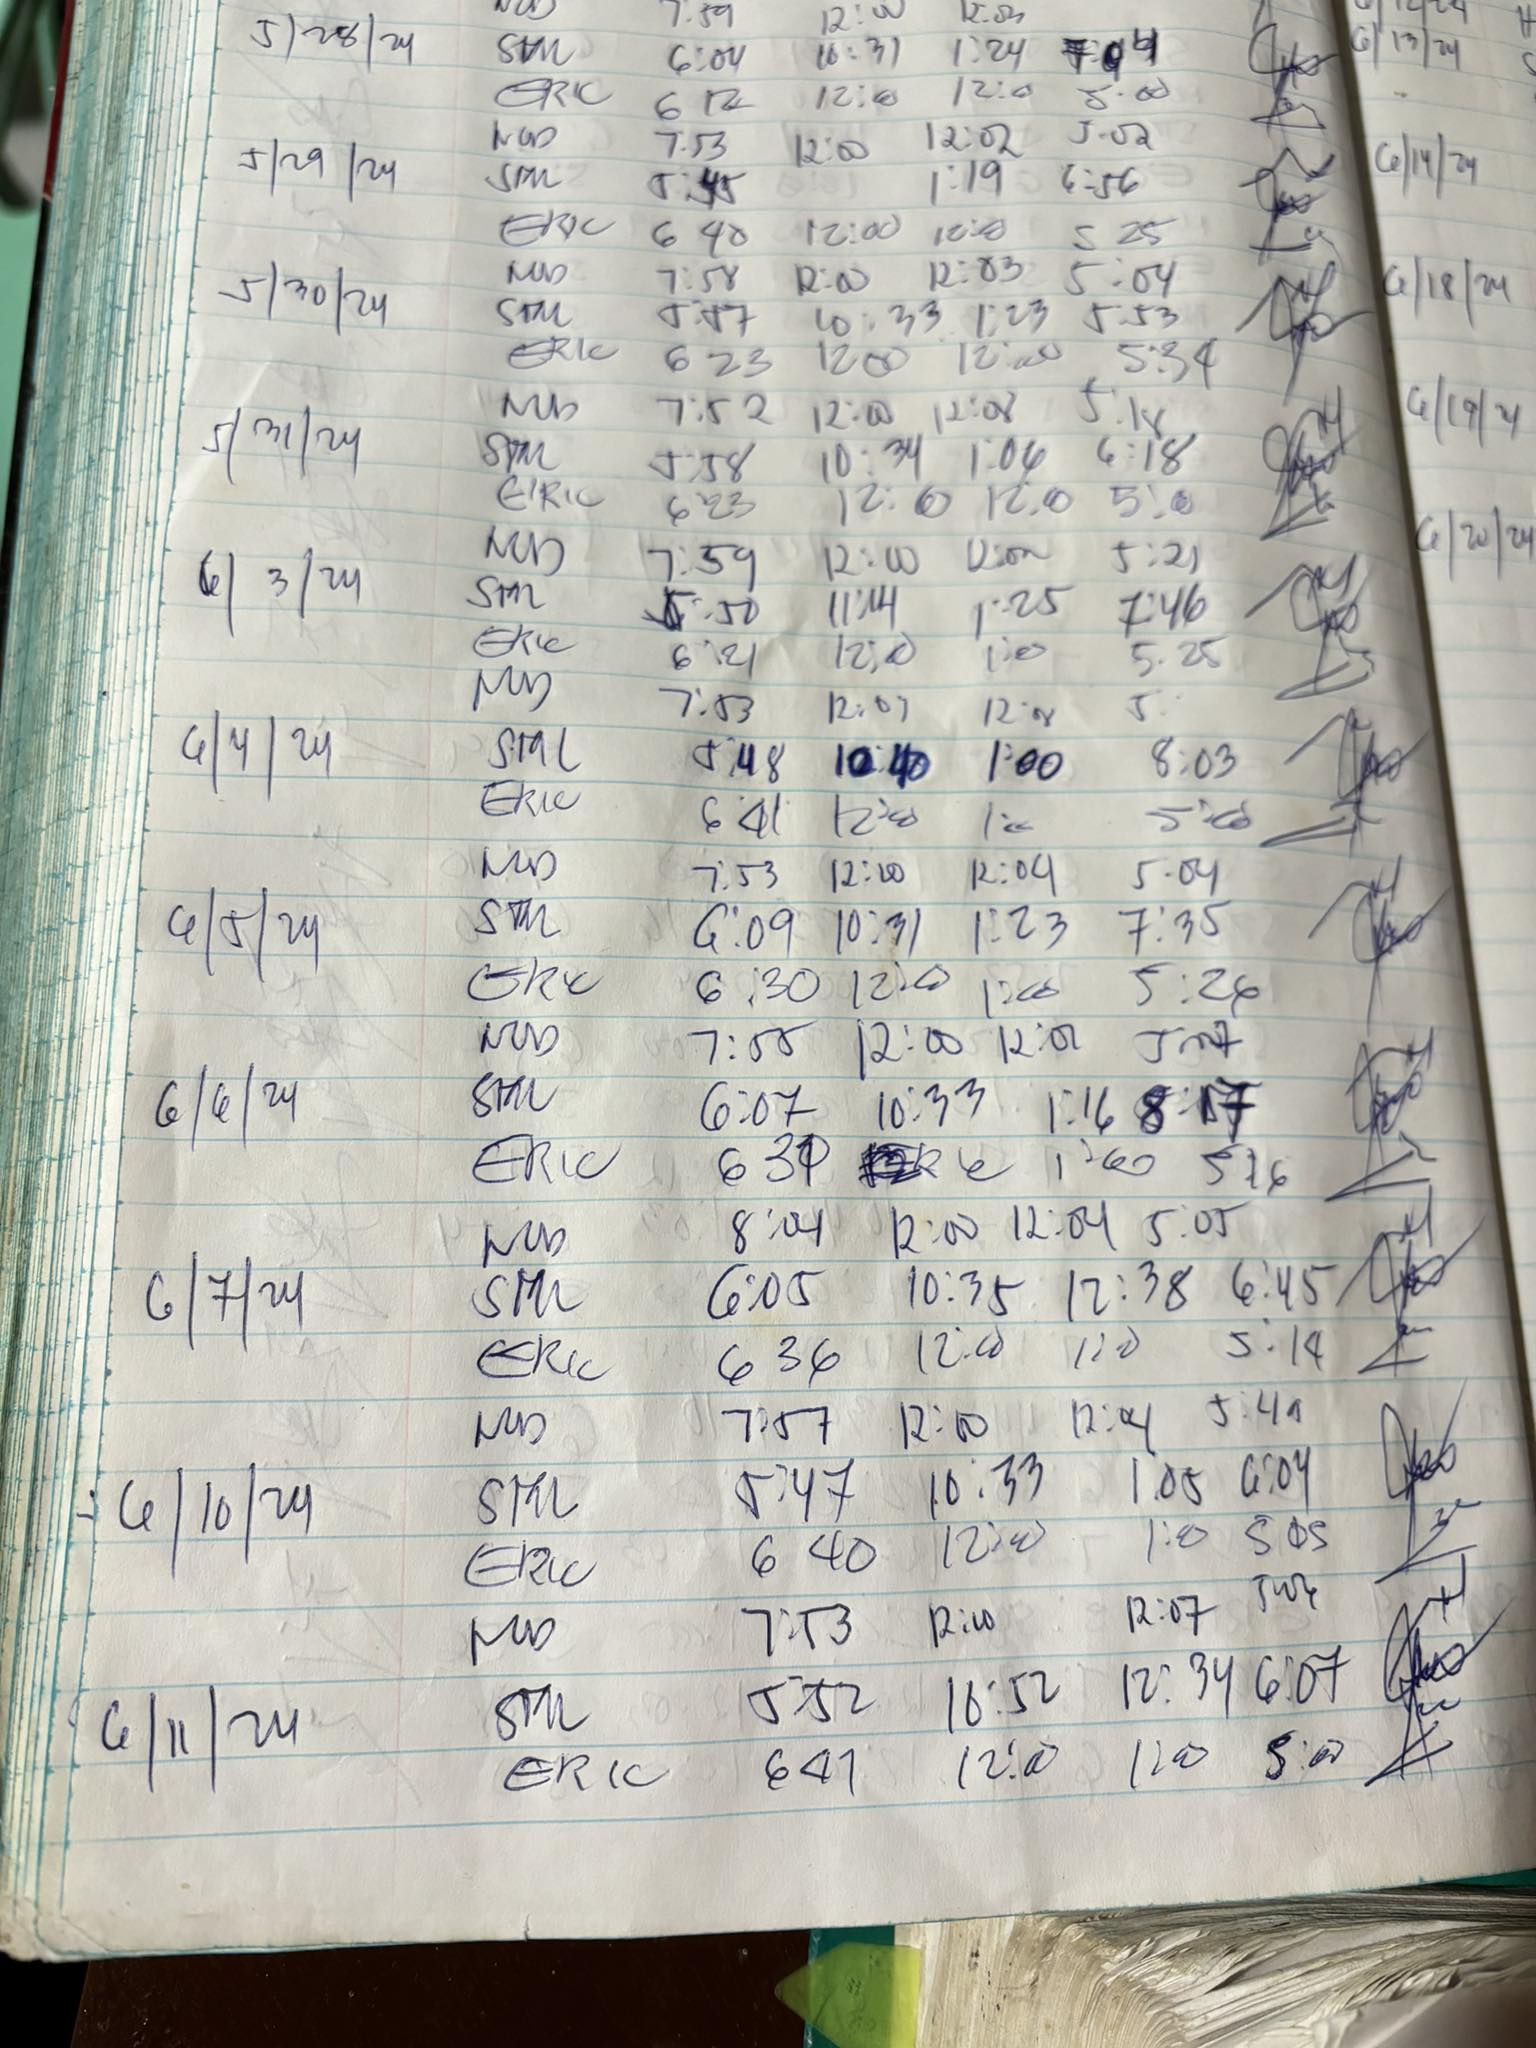 7:59 12:00
5/28/24 STM 6:04 10:31 1:24 7:04
ERIC 6 12 12:00 12:00 5:00
NUD 7:53 12:00 12:02 5:02
5/29/24 STM 5:45 1:19 6:56
ERIC 6 40 12:00 12:00 5 25
NUD 7:58 12:00 12:03 5:04
5/30/24 STM 5:57 10:33 1:23 5:53
ERIC 6 23 12 00 12:00 5:34
NUD 7:52 12:00 12:08 5:18
5/31/24 STM 5:58 10:34 1:06 6:18
ERIC 6:23 12:00 12:00 5:0
NUD 7:59 12:00 5:21
6/3/24 STM 5:50 11:14 1:25 7:46
ERIC 6:21 12:00 1:00 5:25
NUD 7:53 12:01 12:08 5:
6/4/24 STM 5:48 10:40 1:00 8:03
ERIC 6 41 12:00 1:00 5:00
NUD 7:53 12:00 12:04 5:04
6/5/24 STM 6:09 10:31 1:23 7:35
ERIC 6:30 12:00 1:00 5:26
NUD 7:55 12:00 12:01 5:07
6/6/24 STM 6:07 10:33 1:16 8:17
ERIC 6 39 1:00 5:16
NUD 8:04 12:00 12:04 5:05
6/7/24 STM 6:05 10:35 12:38 6:45
ERIC 6 36 12:00 1:00 5:14
NUD 7:57 12:00 12:04
6/10/24 STM 5:47 10:33 1:05 6:04
ERIC 6 40 12:00 1:0 5 05
NUD 7:53 12:00 12:07
6/11/24 STM 5:52 10:52 12:34 6:07
ERIC 6 41 12:00 1:00 5:00
6/13/24
6/14/24
6/18/24
6/19/24
6/20/24